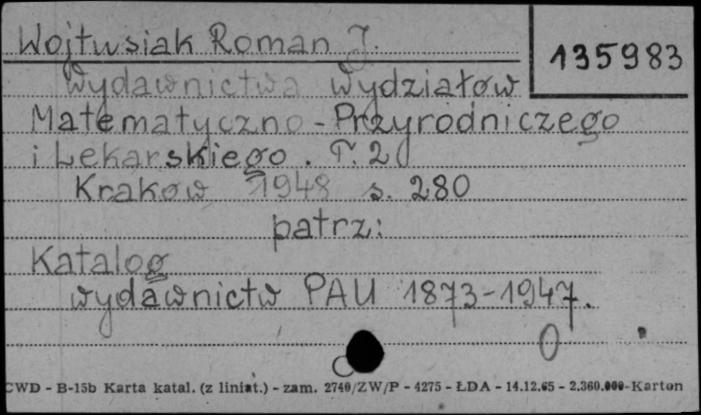 Wojtusiak Roman J.
135983
Wydawnictwa Wydziałów
Matematyczno-Przyrodniczego
i Lekarskiego. T. 2
Kraków 1948 s. 280
patrz:
Katalog
wydawnictw PAU 1873-1947.
CWD - B-15b Karta katal. (z liniat.) - zam. 2740/ZW/P - 4275 - ŁDA - 14.12.65 - 2.360.000-Karton